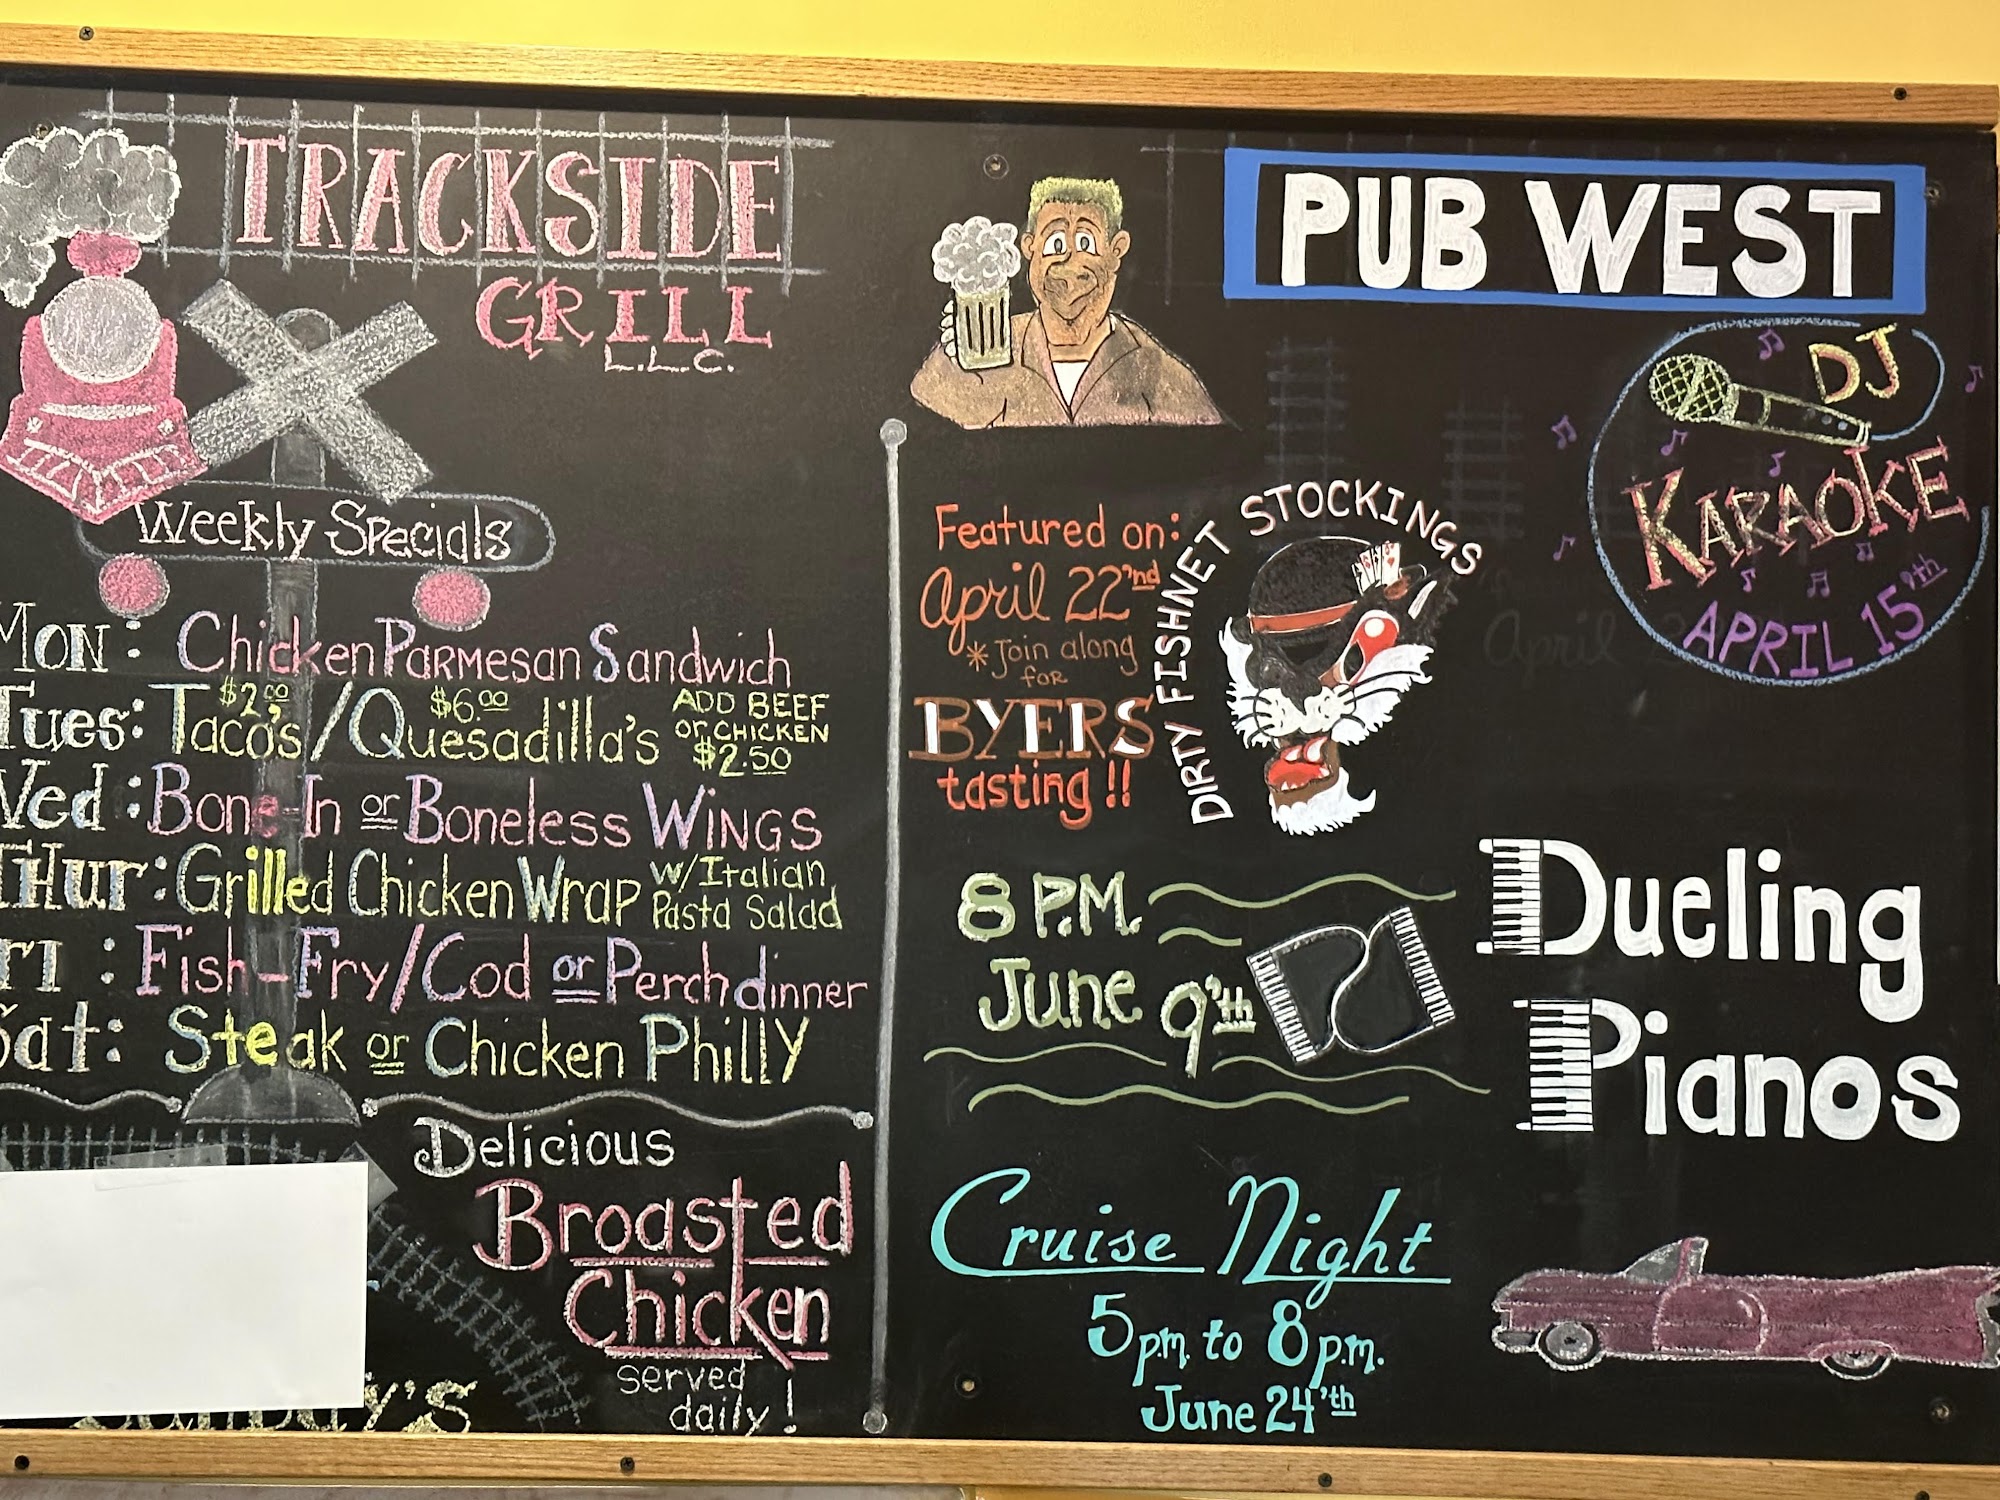 TRACKSIDE
GRILL
L.L.C.
Weekly Specials
Mon: Chicken Parmesan Sandwich
Tues: $2.00 Taco's / $6.00 Quesadilla's ADD BEEF or CHICKEN $2.50
Wed: Bone-In or Boneless Wings
Thur: Grilled Chicken Wrap w/Italian Pasta Salad
Fri: Fish-Fry/Cod or Perch dinner
Sat: Steak or Chicken Philly
Delicious
Broasted
Chicken
served
daily!
PUB WEST
DJ
KARAOKE
APRIL 15'th
Featured on:
April 22'nd
*Join along
for
BYERS
tasting!!
DIRTY FISHNET STOCKINGS
8 P.M.
June 9'th
Dueling
Pianos
Cruise Night
5pm. to 8p.m.
June 24'th